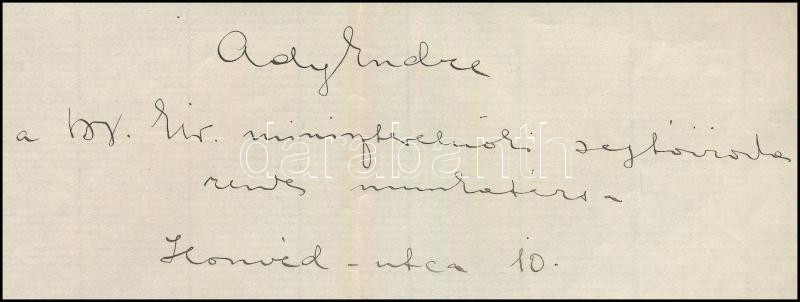 Ady Endre
a M. Kir. miniszterelnöki sajtóiroda
rendes munkatársa
Honvéd-utca 10.
darabanth